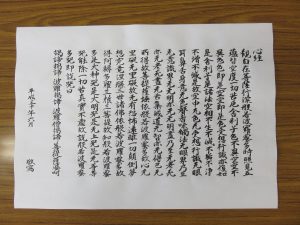 心経
観自在菩薩行深般若波羅蜜多時照見五
蘊皆空度一切苦厄舎利子色不異空空不
異色色即是空空即是色受想行識亦復如
是舎利子是諸法空相不生不滅不垢不浄
不増不減是故空中無色無受想行識無眼
耳鼻舌身意無色声香味触法無眼界乃至
無意識界無無明亦無無明尽乃至無老死
亦無老死尽無苦集滅道無智亦無得以無
所得故菩提薩埵依般若波羅蜜多故心無
罣礙無罣礙故無有恐怖遠離一切顛倒夢
想究竟涅槃三世諸仏依般若波羅蜜多故
得阿耨多羅三藐三菩提故知般若波羅蜜
多是大神呪是大明呪是無上呪是無等等
呪能除一切苦真実不虚故説般若波羅蜜
多呪即説呪曰
羯諦羯諦波羅羯諦波羅僧羯諦菩提薩婆訶
平成 年六月 敬写